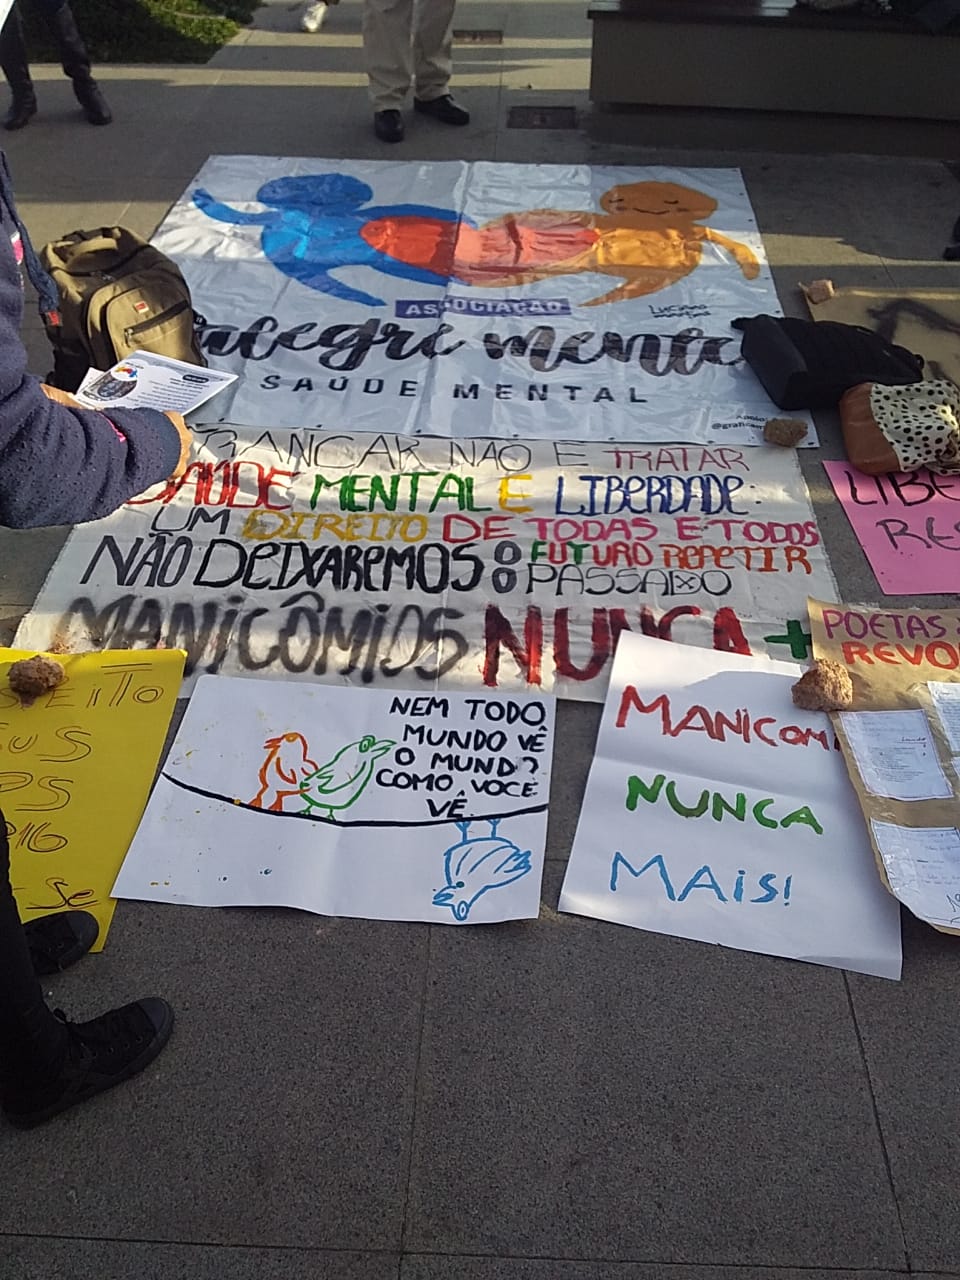 ASSOCIAÇÃO
alegre mente
SAÚDE MENTAL
TRANCAR NÃO E TRATAR
SAÚDE MENTAL E LIBERDADE:
UM DIREITO DE TODAS E TODOS
NÃO DEIXAREMOS O FUTURO REPETIR
O PASSADO
MANICÔMIOS NUNCA +
LIBE
RE
POETAS
REVO
EITO
SUS
PS
216
SE
NEM TODO
MUNDO VÊ
O MUNDO
COMO VOCÊ
VÊ.
MANICOMI
NUNCA
MAIS!